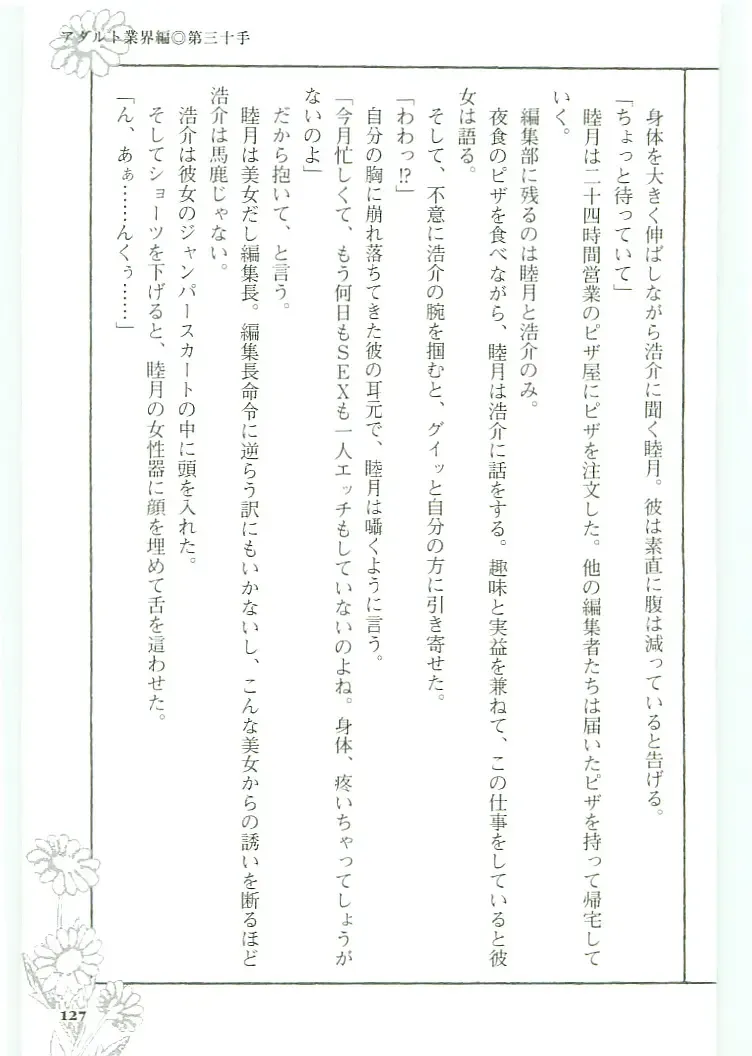 アダルト業界編◎第三十手
身体を大きく伸ばしながら浩介に聞く睦月。彼は素直に腹は減っていると告げる。
「ちょっと待っていて」
睦月は二十四時間営業のピザ屋にピザを注文した。他の編集者たちは届いたピザを持って帰宅して
いく。
編集部に残るのは睦月と浩介のみ。
夜食のピザを食べながら、睦月は浩介に話をする。趣味と実益を兼ねて、この仕事をしていると彼
女は語る。
そして、不意に浩介の腕を掴むと、グイッと自分の方に引き寄せた。
「わわっ!?」
自分の胸に崩れ落ちてきた彼の耳元で、睦月は囁くように言う。
「今月忙しくて、もう何日もＳＥＸも一人エッチもしていないのよね。身体、疼いちゃってしょうが
ないのよ」
だから抱いて、と言う。
睦月は美女だし編集長。編集長命令に逆らう訳にもいかないし、こんな美女からの誘いを断るほど
浩介は馬鹿じゃない。
浩介は彼女のジャンパースカートの中に頭を入れた。
そしてショーツを下げると、睦月の女性器に顔を埋めて舌を這わせた。
「ん、あぁ……んくぅ……」
127